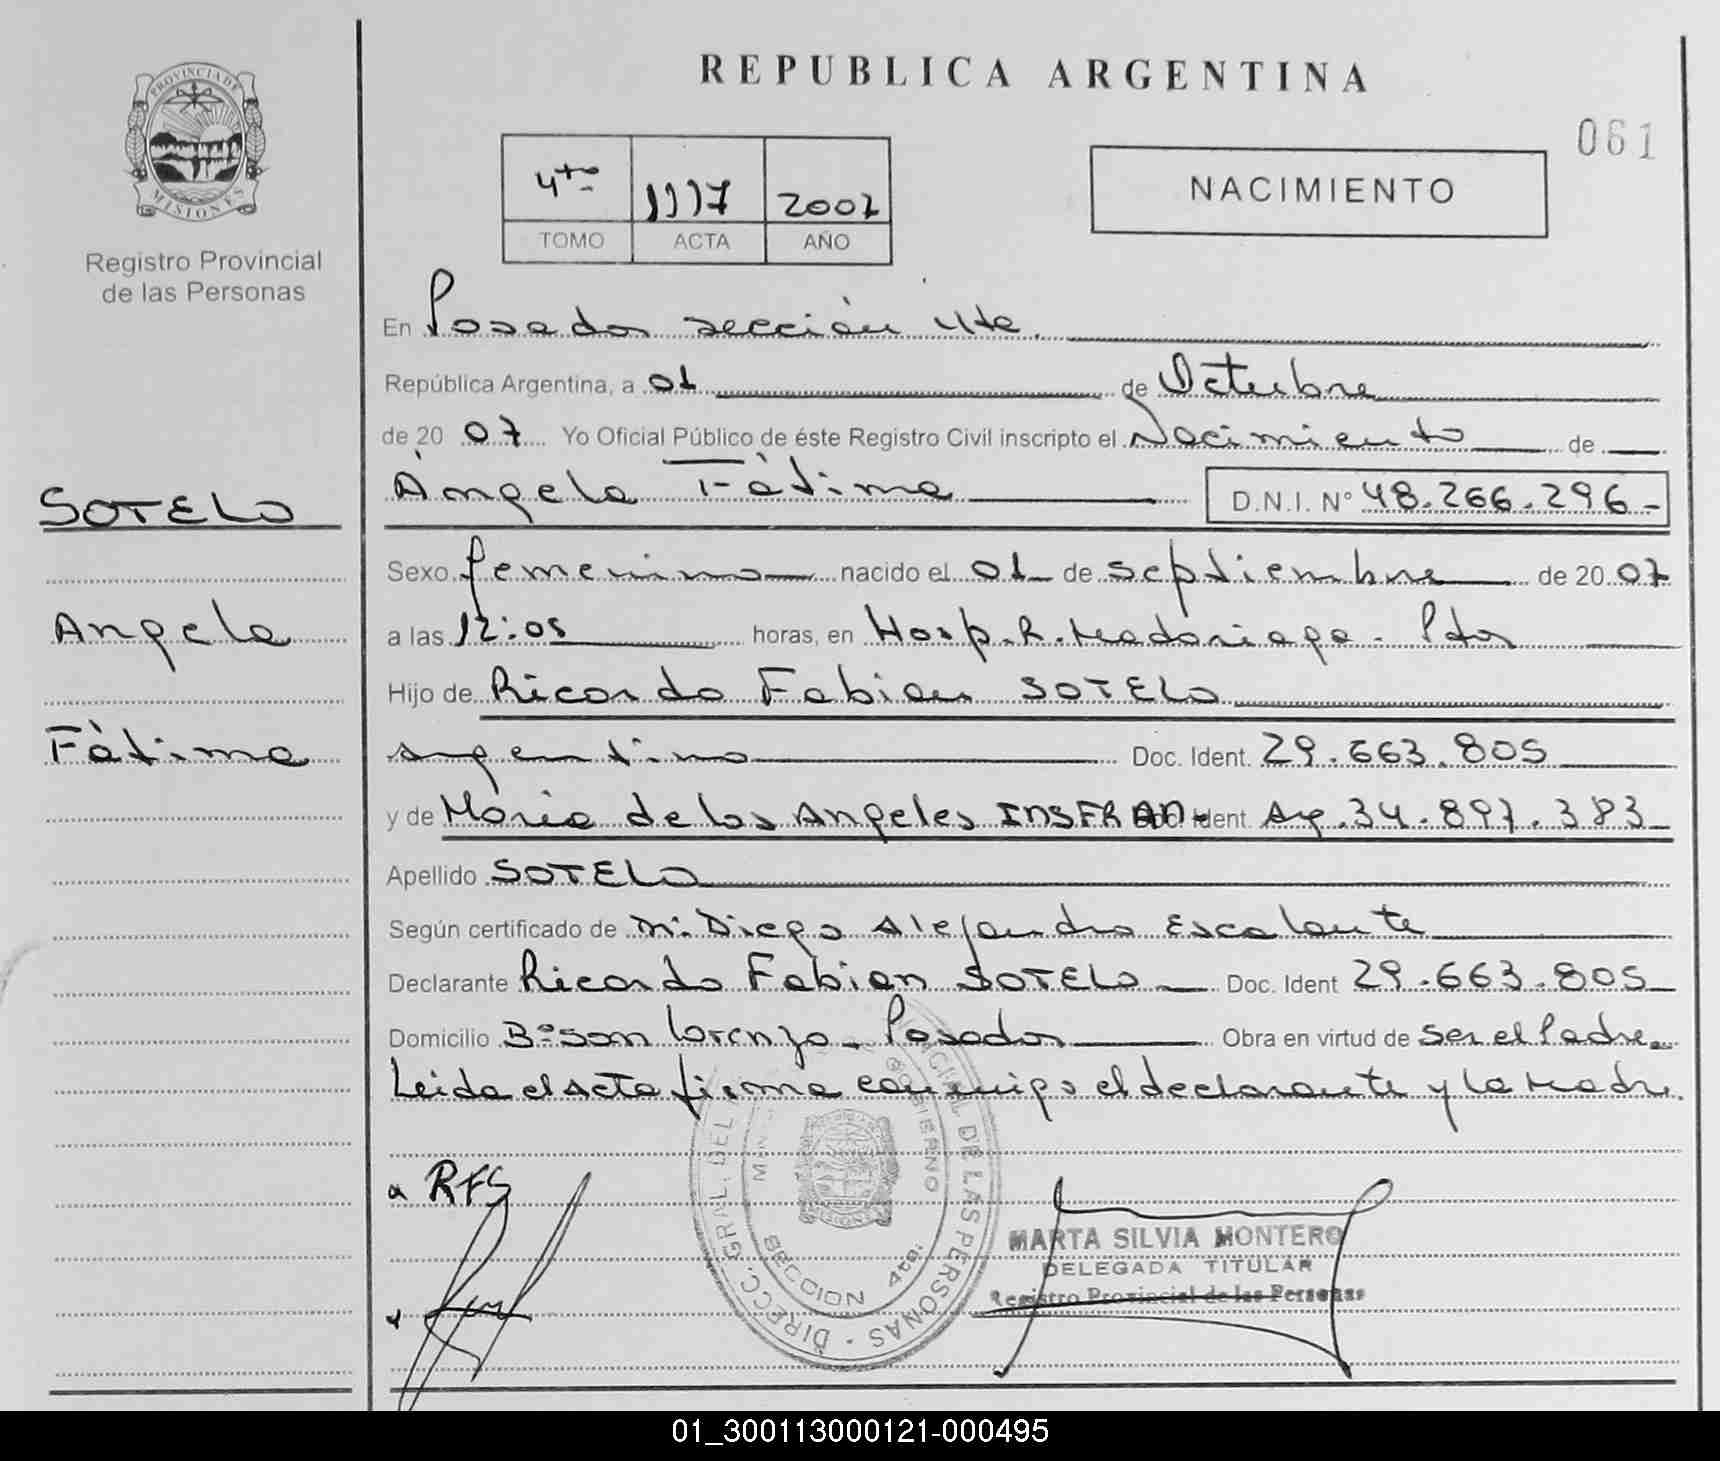 REPUBLICA ARGENTINA
061
PROVINCIA DE
MISIONES
Registro Provincial
de las Personas
4to 1117 2007
TOMO ACTA AÑO
NACIMIENTO
En Posadas sección 4ta.
República Argentina, a 01 de Octubre
de 20 07 Yo Oficial Público de éste Registro Civil inscripto el Nacimiento de
SOTELO
Angela
Fátima
Ángela Fátima D.N.I. N° 48.266.296-
Sexo femenino nacido el 01 de septiembre de 20 07
a las 12:05 horas, en Hosp. R. Madariaga - Pdas
Hijo de Ricardo Fabian SOTELO
argentino Doc. Ident. 29.663.805
y de María de los Angeles INSFRAN- Doc. Ident Arg. 34.897.383
Apellido SOTELO
Según certificado de Dr. Diego Alejandro Escalante
Declarante Ricardo Fabian SOTELO Doc. Ident 29.663.805
Domicilio B° San Lorenzo - Posadas Obra en virtud de ser el Padre.
Leida el acta firma conmigo el declarante y la Madre.
RFS
DIRECC. GRAL. DEL PROVINCIAL DE LAS PERSONAS
GOBIERNO
SECCION 4ta.
MARTA SILVIA MONTERO
DELEGADA TITULAR
Registro Provincial de las Personas
01_300113000121-000495